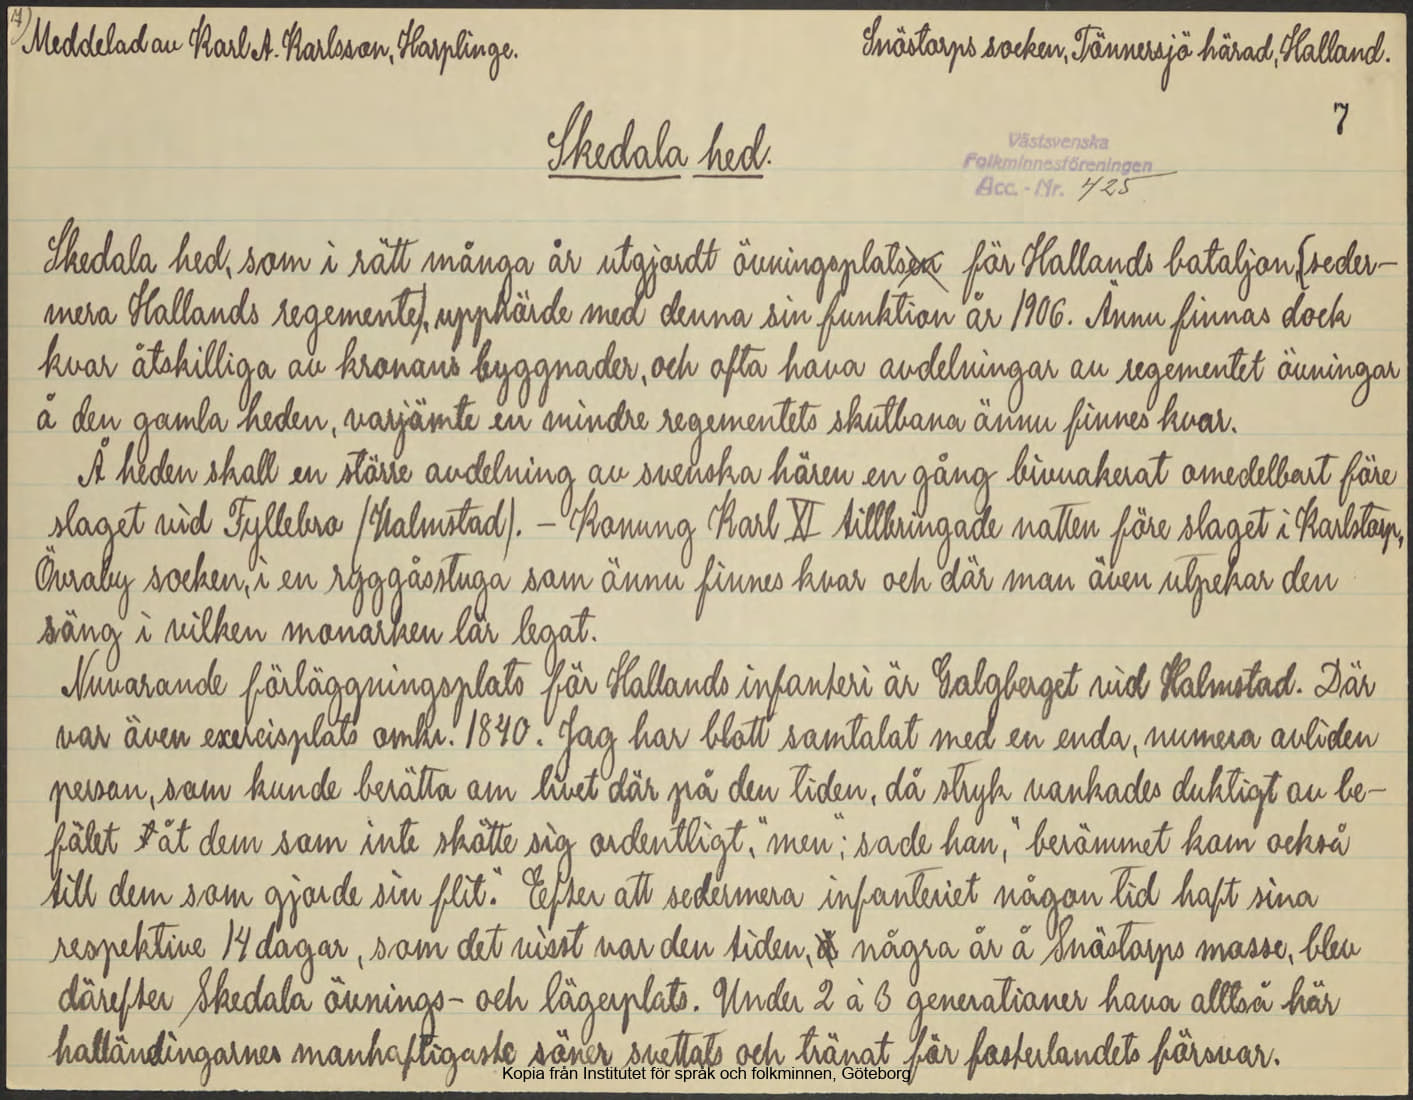 7)
Meddelad av Karl A. Karlsson, Harplinge.
Snöstorps socken, Tönnersjö härad, Halland.
7
Skedala hed.
Västsvenska
Folkminnesföreningen
Acc.-Nr. 425
Skedala hed, som i rätt många år utgjordt övningsplatsen för Hallands bataljon, (seder-
mera Hallands regemente), upphörde med denna sin funktion år 1906. Ännu finnas dock
kvar åtskilliga av kronans byggnader, och ofta hava avdelningar av regementet övningar
å den gamla heden, varjämte en mindre regementets skutbana ännu finnes kvar.
Å heden skall en större avdelning av svenska hären en gång bivuakerat omedelbart före
slaget vid Fyllebro (Halmstad). – Konung Karl XI tillbringade natten före slaget i Karlstorp,
Övraby socken, i en ryggåsstuga som ännu finnes kvar och där man även utpekar den
säng i vilken monarken lär legat.
Nuvarande förläggningsplats för Hallands infanteri är Galgberget vid Halmstad. Där
var även exercisplats omkr. 1840. Jag har blott samtalat med en enda, numera avliden
person, som kunde berätta om livet där på den tiden, då stryk vankades duktigt av be-
fälet åt dem som inte skötte sig ordentligt, "men", sade han, "berömmet kom också
till dem som gjorde sin flit." Efter att sedermera infanteriet någon tid haft sina
respektive 14 dagar, som det visst var den tiden, några år å Snöstorps mosse, blev
därefter Skedala övnings- och lägerplats. Under 2 à 3 generationer hava alltså här
hallänningarnes manhaftigaste söner svettats och tränat för fosterlandets försvar.
Kopia från Institutet för språk och folkminnen, Göteborg